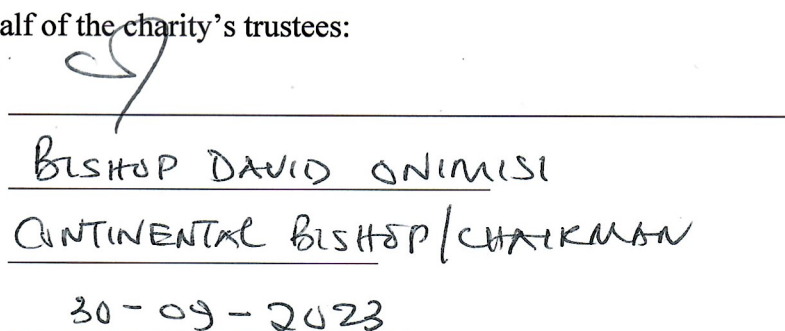 alf of the charity's trustees:
BISHOP DAVID ONIMISI
CONTINENTAL BISHOP/CHAIRMAN
30-09-2023